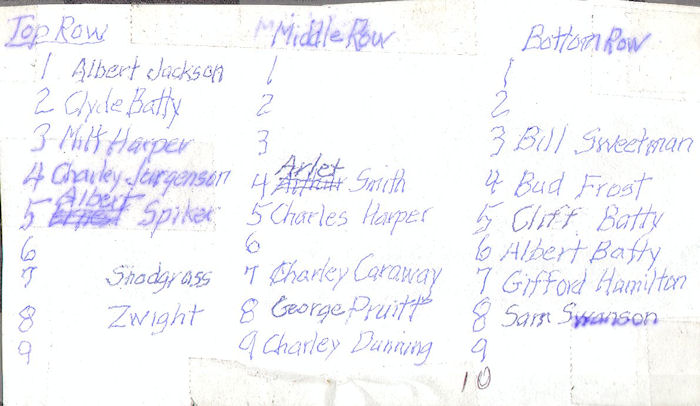 Top Row Middle Row Bottom Row
1 Albert Jackson 1 1
2 Clyde Batty 2 2
3 Milt Harper 3 3 Bill Sweetman
4 Charley Jorgenson 4 Arlet Smith 4 Bud Frost
5 Albert Spiker 5 Charles Harper 5 Cliff Batty
6 6 6 Albert Batty
7 Snodgrass 7 Charley Caraway 7 Gifford Hamilton
8 Zwight 8 George Pruitt 8 Sam Swanson
9 9 Charley Dunning 9
10